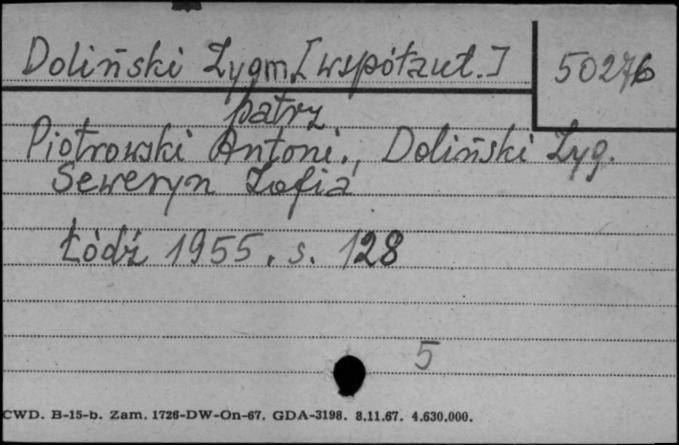 Doliński Zygm. [współaut.] 50276
patrz
Piotrowski Antoni., Doliński Zyg.
Seweryn Zofia
Łódź 1955. s. 128
5
CWD. B-15-b. Zam. 1726-DW-On-67. GDA-3198. 8.11.67. 4.630.000.